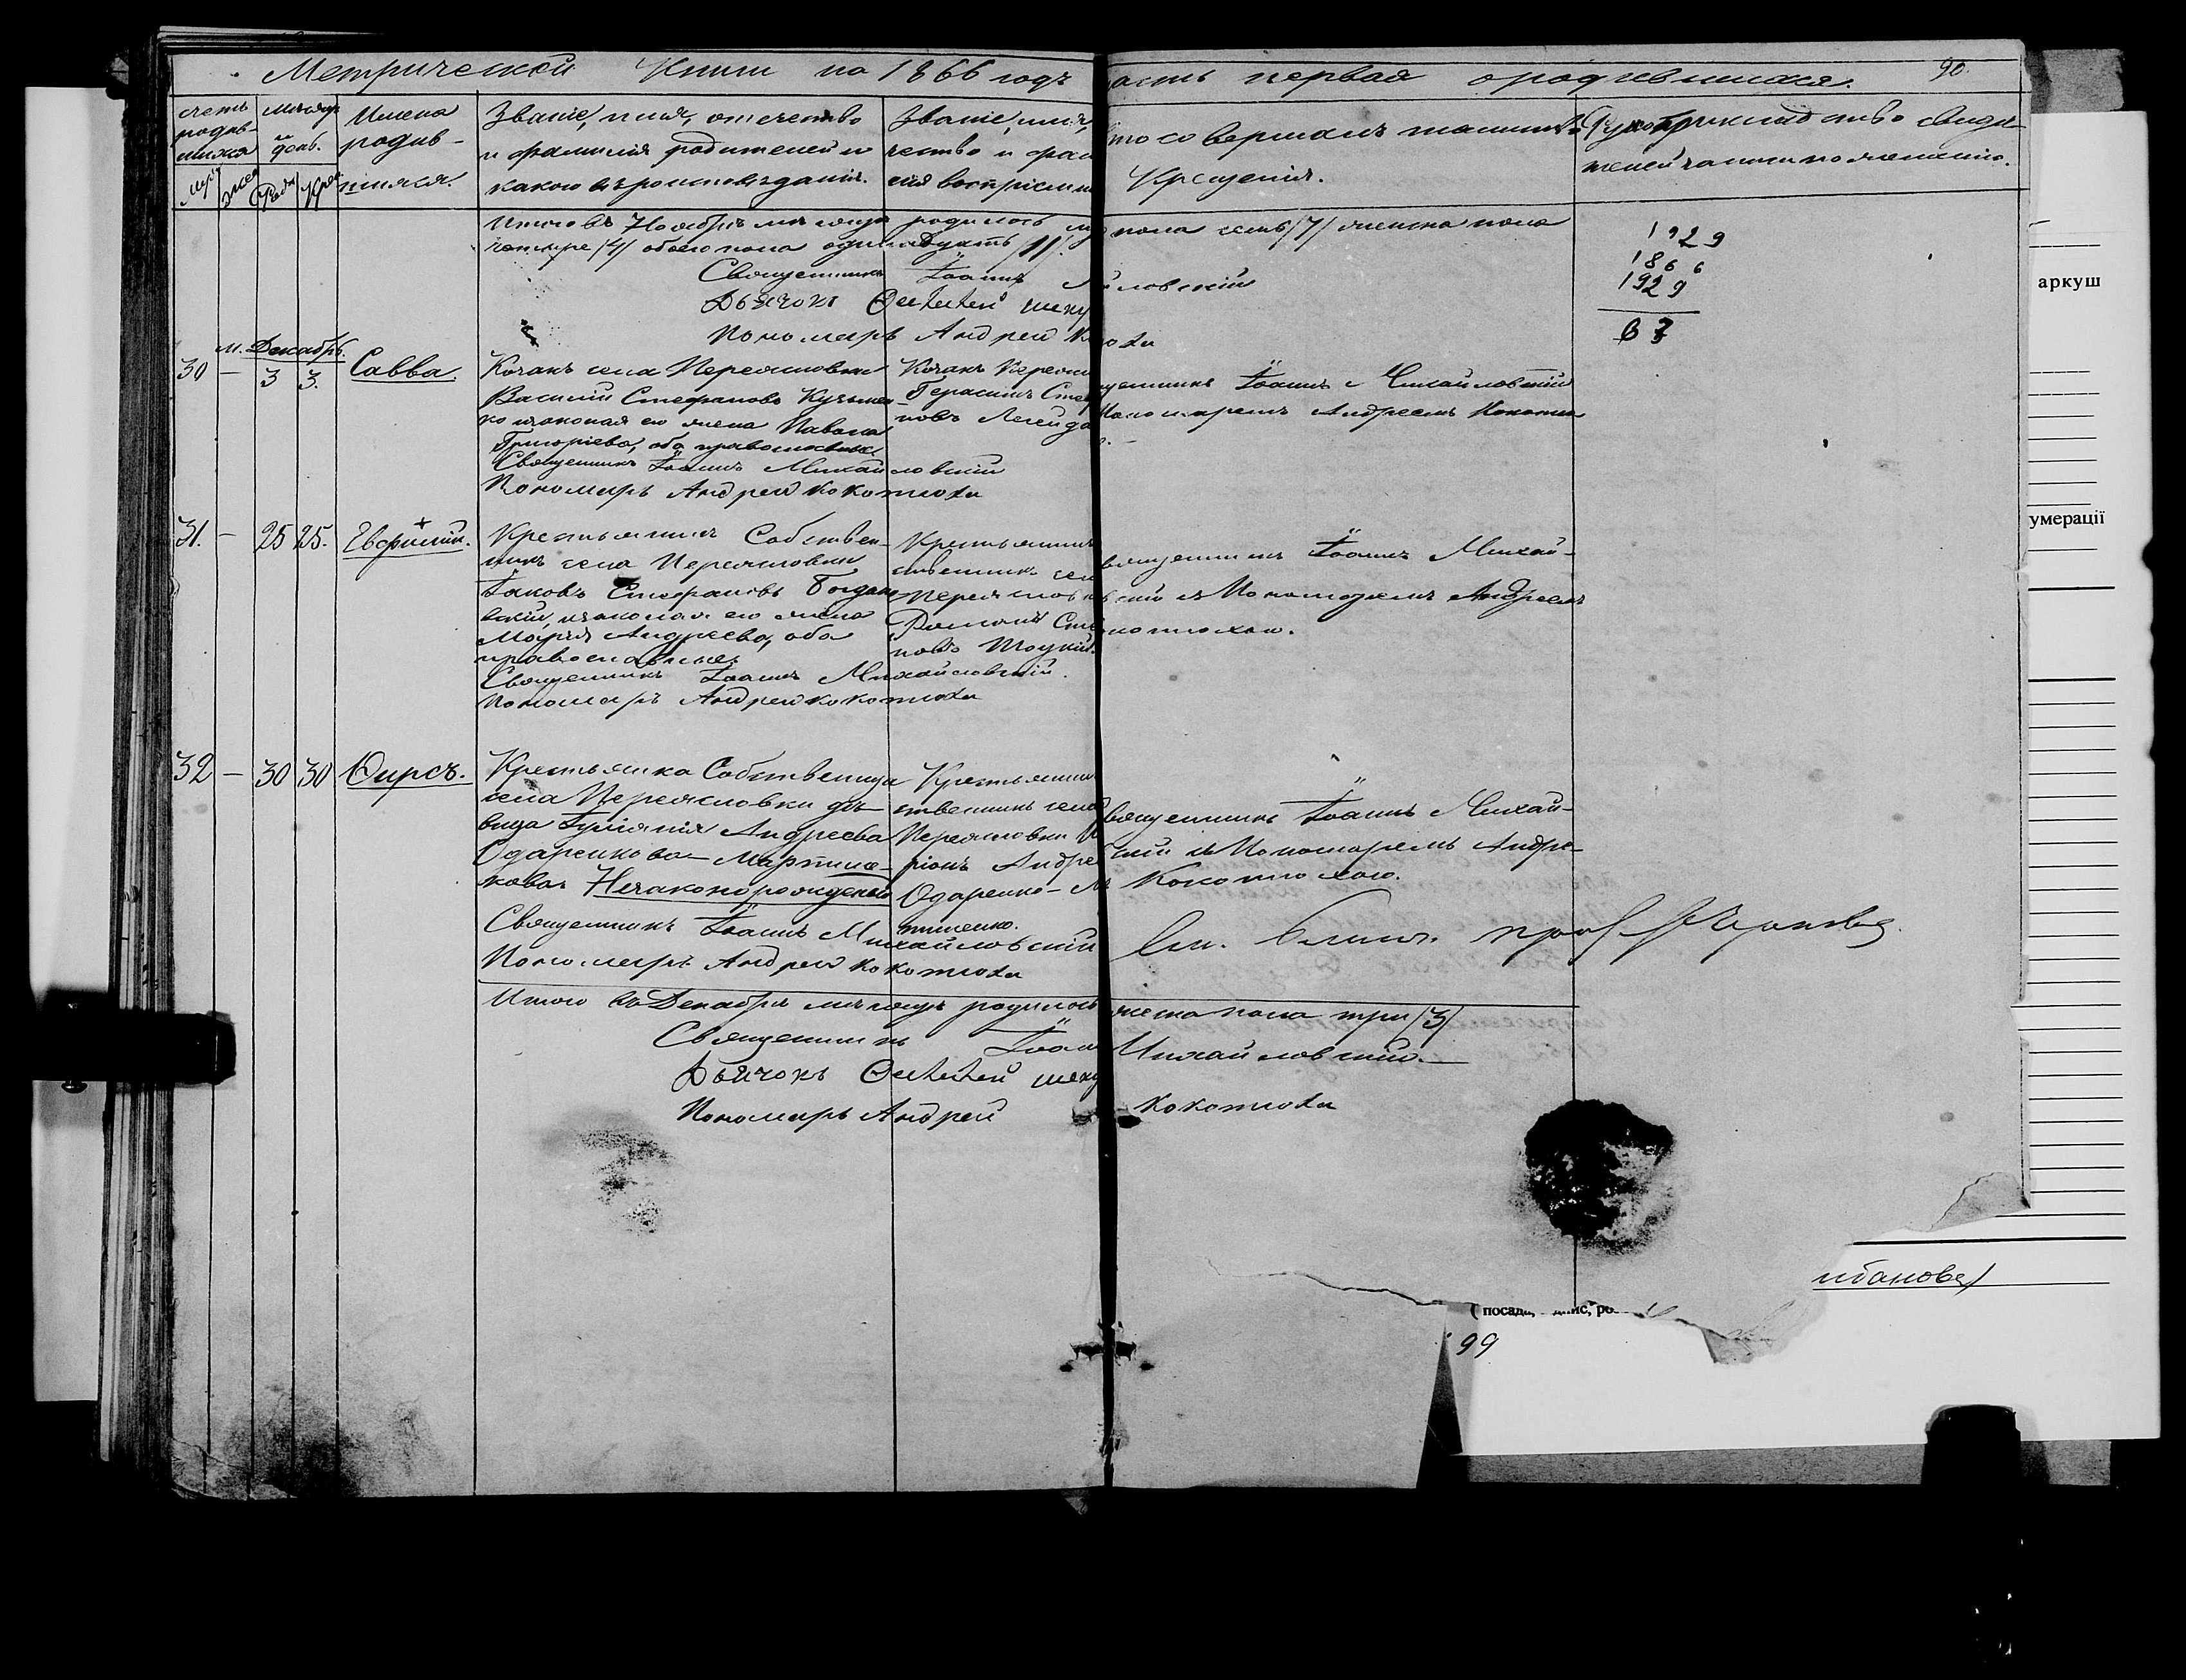 Метрической Книги на 1866 годъ
асть первая о родившихся. 90.
счетъ родив-
шихся
Мѣсяцъ
и
день.
Имена
родив-
шихся.
Званіе, имя, отечество
и фамилія родителей и
какого вѣроисповѣданія.
Званіе, имя,
чество и фам
лія воспріемн
то совершалъ таинство
Крещенія.
Рукоприкладство свидѣ-
телей записи по желанію.
муж жен Рожд Крещ
Итого въ Ноябрѣ мѣсяцѣ родилось м
четыре /4/ обоего пола одинадцать /11/.
пола семь /7/ женска пола
Священникъ Іоаннъ М
ловскій
Дьячокъ
Пономарь Андрей К
1929
1866
1929
63
м. Декабрь.
30 — 3 3. Савва.
Козакъ села Переясловки
Василій Стефановъ Кузьмен-
ко законная его жена Павла
Григоріева, оба православные.
Священникъ Іоаннъ Михайловскій
Пономарь Андрей Кокотюха
Козакъ Переяс
Герасимъ Стеф
новъ Легейда
щенникъ Іоаннъ Михайловскій
Пономаремъ Андреемъ Кокотю
31. — 25 25. Евфимій.
Крестьянинъ Собствен-
никъ села Переясловки
Іаковъ Стефановъ Богдан
вскій, законная его жена
Марія Андреева, оба
православные.
Священникъ Іоаннъ Михайловскій.
Пономарь Андрей Кокотюха
Крестьянинъ
ственникъ сел
Переяслов
Стеф
новъ
вященникъ Іоаннъ Михай-
вскій съ Пономаремъ Андреемъ
котюхою.
32 — 30 30 Ѳирсъ.
Крестьянка Собственница
села Переясловки дѣ-
вица Іуліанія Андреева
Одаренкова-Мартине-
нкова Незаконорожденый
Священникъ Іоаннъ Михайловскій
Пономарь Андрей Кокотюха
Крестьянин
ственникъ села
Переясловки
ріонъ Андре
Одаренко-М
тиненко.
вященникъ Іоаннъ Михай-
скій съ Пономаремъ Андре-
Кокотюхою.
Итого въ Декабрѣ мѣсяцѣ родилось
жеска пола три /3/
Священникъ Іоан
Михайловскій.
Дьячокъ
Пономарь Андрей
Кокотюха
аркуш
умерації
99